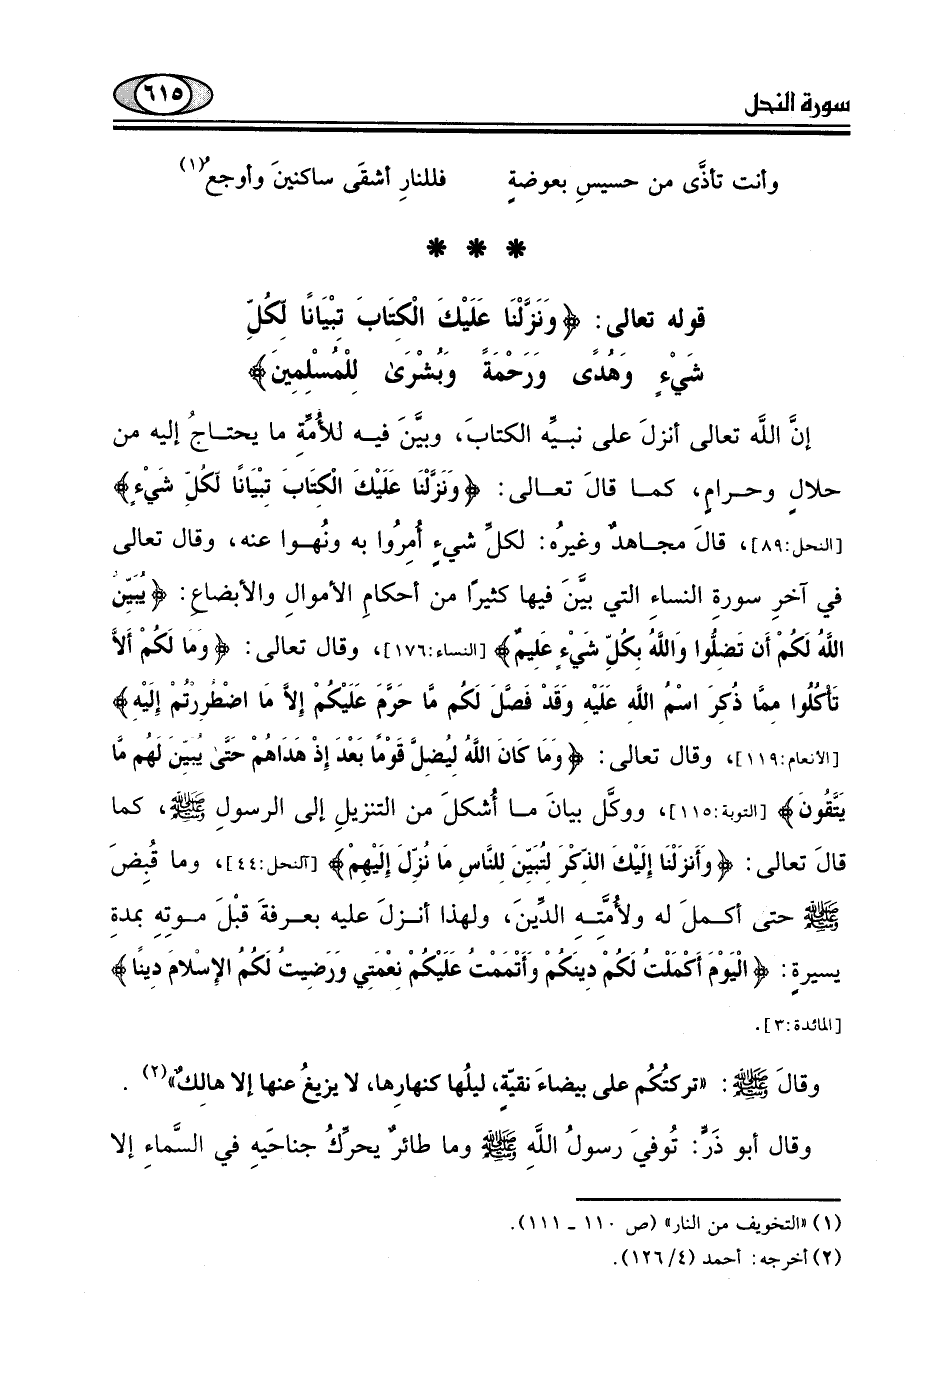 سورة النحل ٦١٥
وأنت تأذَّى من حسيسِ بعوضةٍ فللنارِ أشقَى ساكنينَ وأوجعُ(١)
* * *
قوله تعالى: ﴿وَنَزَّلْنَا عَلَيْكَ الْكِتَابَ تِبْيَانًا لِّكُلِّ
شَيْءٍ وَهُدًى وَرَحْمَةً وَبُشْرَىٰ لِلْمُسْلِمِينَ﴾
إنَّ اللَّه تعالى أنزلَ على نبيِّه الكتابَ، وبيَّنَ فيه للأُمَّةِ ما يحتاجُ إليه من
حلالٍ وحرامٍ، كما قالَ تعالى: ﴿وَنَزَّلْنَا عَلَيْكَ الْكِتَابَ تِبْيَانًا لِّكُلِّ شَيْءٍ﴾
[النحل:٨٩]، قالَ مجاهدٌ وغيرهُ: لكلِّ شيءٍ أُمرُوا به ونُهوا عنه، وقال تعالى
في آخرِ سورةِ النساءِ التي بيَّنَ فيها كثيرًا من أحكامِ الأموالِ والأبضاعِ: ﴿يُبَيِّنُ
اللَّهُ لَكُمْ أَن تَضِلُّوا وَاللَّهُ بِكُلِّ شَيْءٍ عَلِيمٌ﴾ [النساء:١٧٦]، وقال تعالى: ﴿وَمَا لَكُمْ أَلاَّ
تَأْكُلُوا مِمَّا ذُكِرَ اسْمُ اللَّهِ عَلَيْهِ وَقَدْ فَصَّلَ لَكُم مَّا حَرَّمَ عَلَيْكُمْ إِلاَّ مَا اضْطُرِرْتُمْ إِلَيْهِ﴾
[الأنعام:١١٩]، وقال تعالى: ﴿وَمَا كَانَ اللَّهُ لِيُضِلَّ قَوْمًا بَعْدَ إِذْ هَدَاهُمْ حَتَّىٰ يُبَيِّنَ لَهُم مَّا
يَتَّقُونَ﴾ [التوبة:١١٥]، ووكَّل بيانَ ما أُشكلَ من التنزيلِ إلى الرسولِ ﷺ، كما
قالَ تعالى: ﴿وَأَنزَلْنَا إِلَيْكَ الذِّكْرَ لِتُبَيِّنَ لِلنَّاسِ مَا نُزِّلَ إِلَيْهِمْ﴾ [النحل:٤٤]، وما قُبضَ
ﷺ حتى أكملَ له ولأمَّتِه الدِّينَ، ولهذا أنزلَ عليه بعرفةَ قبْلَ موتِه بمدة
يسيرةٍ: ﴿الْيَوْمَ أَكْمَلْتُ لَكُمْ دِينَكُمْ وَأَتْمَمْتُ عَلَيْكُمْ نِعْمَتِي وَرَضِيتُ لَكُمُ الإِسْلامَ دِينًا﴾
[المائدة:٣].
وقالَ ﷺ: «تركتُكُم على بيضاءَ نقيَّةٍ، ليلُها كنهارِها، لا يزيغُ عنها إلا هالكٌ»(٢) .
وقال أبو ذَرٍّ: تُوفيَ رسولُ اللَّهِ ﷺ وما طائرٌ يحركُ جناحَيهِ في السَّماءِ إلا
(١) «التخويف من النار» (ص ١١٠ ـ ١١١).
(٢) أخرجه: أحمد (٤/ ١٢٦).